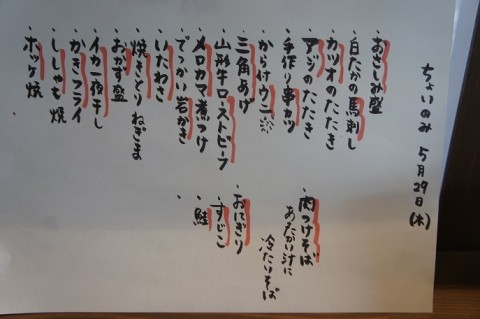 ちょいのみ 5月29日(木)
・おさしみ盛
・白たかの馬刺し
・カツオのたたき
・アジのたたき
・手作り串カツ
・から付ウニ
・三角あげ
・山形牛ローストビーフ
・メロカマ煮つけ
・でっかい岩がき
・いたわさ
・焼きとりねぎま
・おかず盛
・イカ一夜干し
・かきフライ
・ししゃも焼
・ホッケ焼
・肉つけそば
あたたかい汁に
冷たいそば
・おにぎり
・すじこ
・鮭